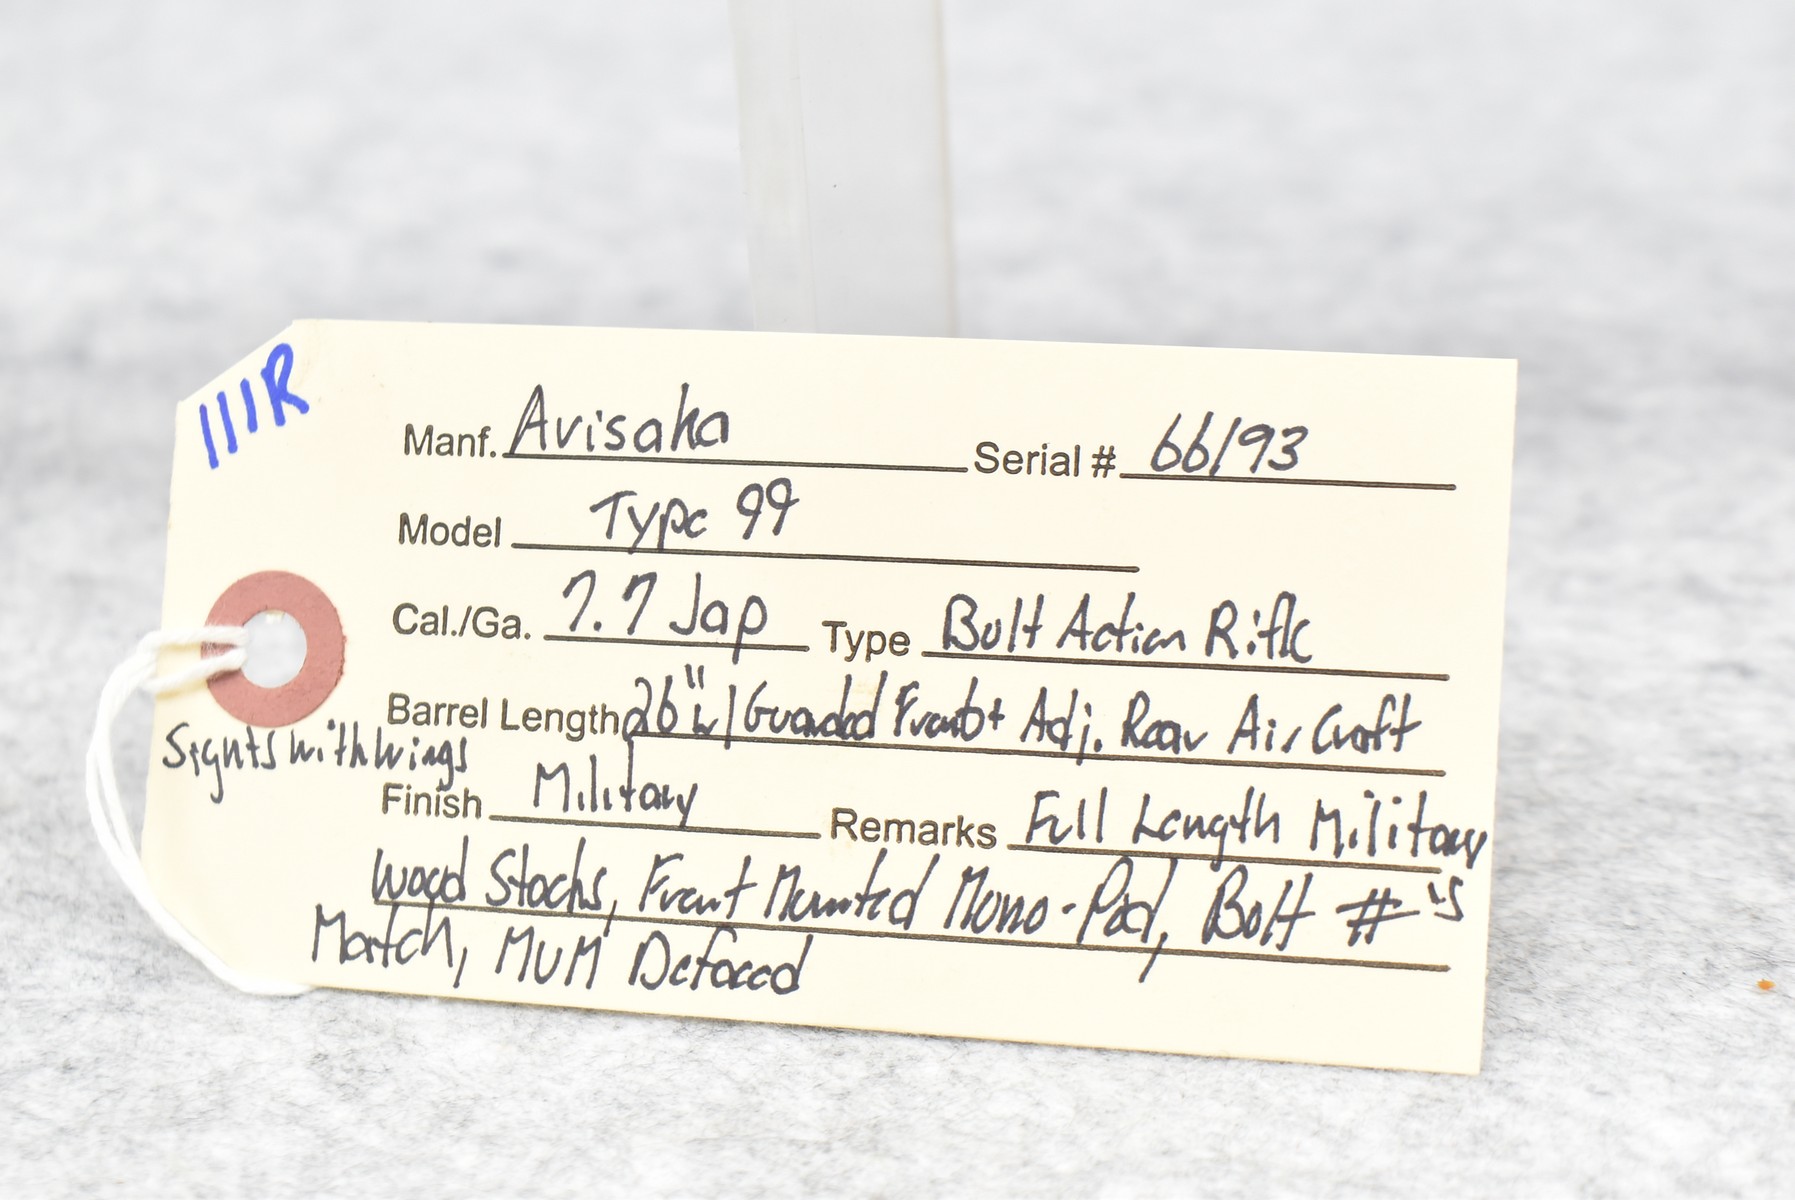 111R
Manf. Arisaka Serial # 66193
Model Type 99
Cal./Ga. 7.7 Jap Type Bolt Action Rifle
Barrel Length 26" w/ Guarded Front + Adj. Rear Air Craft
Sights with wings
Finish Military Remarks Full Length Military
Wood Stocks, Front Mounted Mono-Pod, Bolt #'s
Match, MUM Defaced